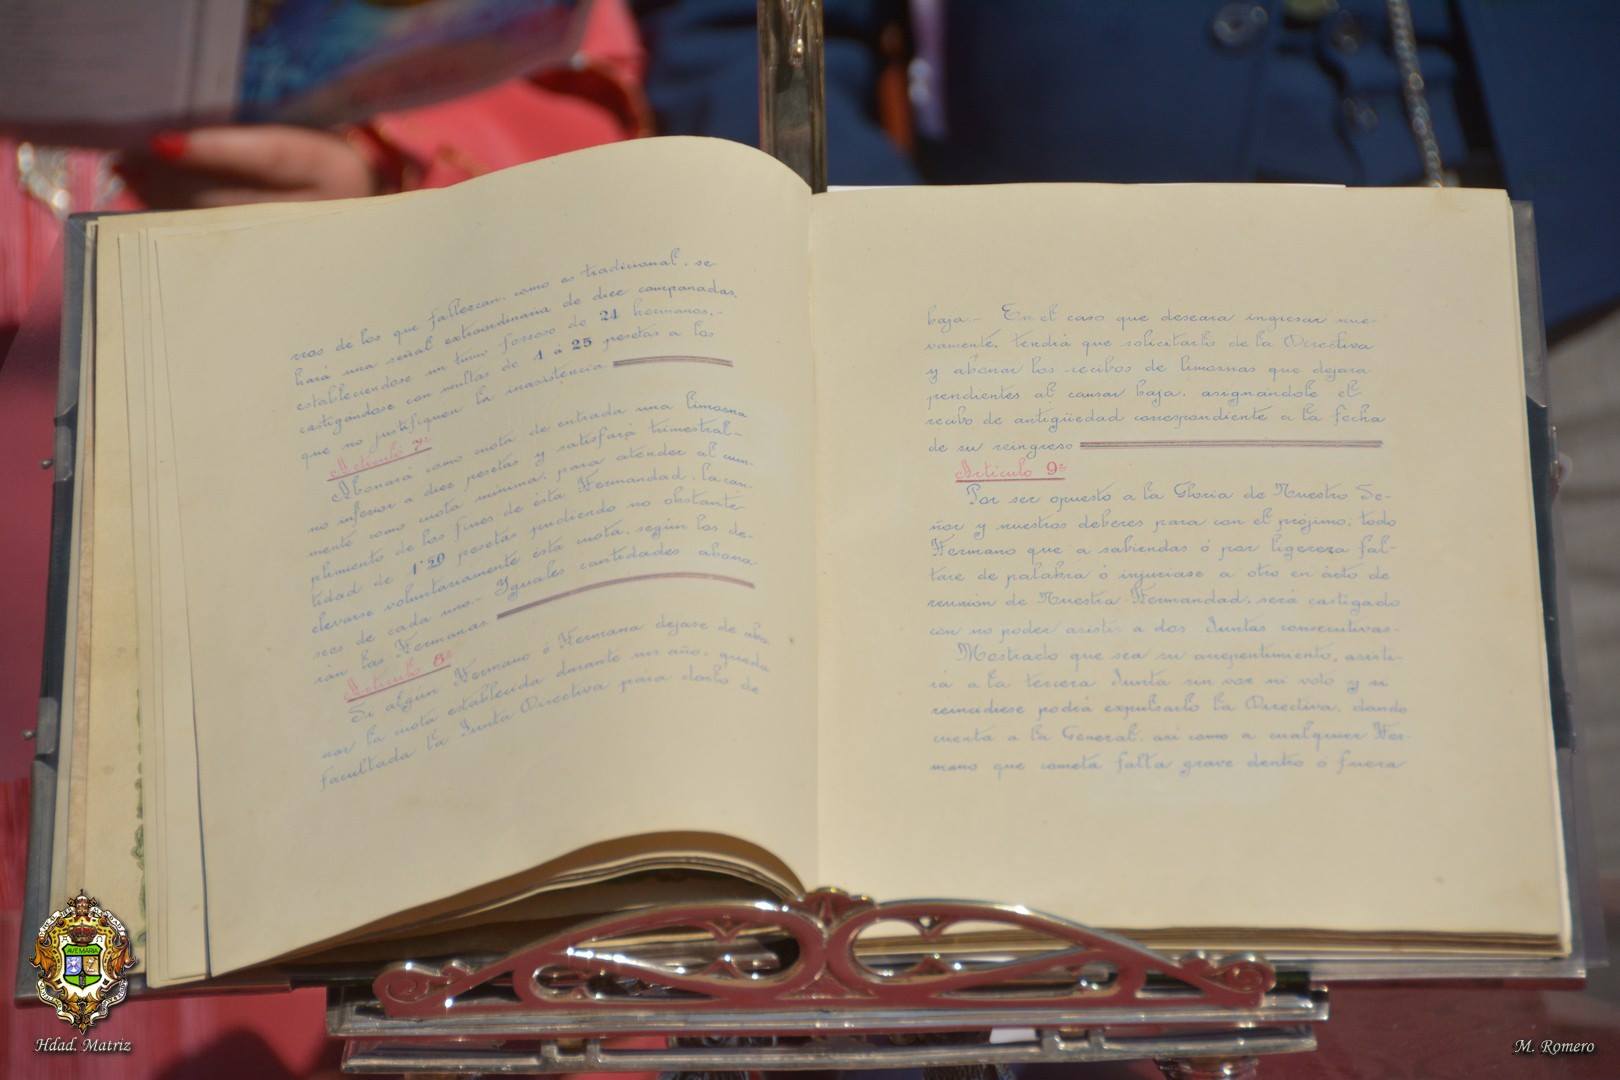 rros de los que fallezcan, como es tradicional, se
hará una señal extraordinaria de diez campanadas,
estableciéndose un turno forzoso de 24 hermanos,-
castigándose con multas de 1 á 25 pesetas a los
que no justifiquen la inasistencia
Artículo 7º
Abonará como cuota de entrada una limosna
no inferior a diez pesetas y satisfará trimestral-
mente como cuota mínima, para atender al cum-
plimiento de los fines de ésta Hermandad, la can-
tidad de 1'50 pesetas pudiendo no obstante
elevarse voluntariamente ésta cuota, según los de-
seos de cada uno.- Yguales cantidades abona
rán las Hermanas
Artículo 8º
Si algún Hermano ó Hermana dejase de abo-
nar la cuota establecida durante un año, queda
facultada la Junta Directiva para darlo de
baja.- En el caso que deseara ingresar nue-
vamente, tendrá que solicitarlo de la Directiva
y abonar los recibos de limosnas que dejara
pendientes al causar baja, asignándole el
recibo de antigüedad correspondiente a la fecha
de su reingreso
Artículo 9º
Por ser opuesto a la Gloria de Nuestro Se-
ñor y nuestros deberes para con el prójimo, todo
Hermano que a sabiendas ó por ligereza fal-
tare de palabra ó injuriase a otro en ácto de
reunión de Nuestra Hermandad, será castigado
con no poder asistir a dos Juntas consecutivas.-
Mostrado que sea su arrepentimiento, asisti-
rá a la tercera Junta sin voz ni voto y si
reincidiese podrá expulsarlo la Directiva, dando
cuenta a la General, así como a cualquier Her-
mano que cometa falta grave dentro ó fuera
AVE MARIA
Hdad. Matriz
M. Romero